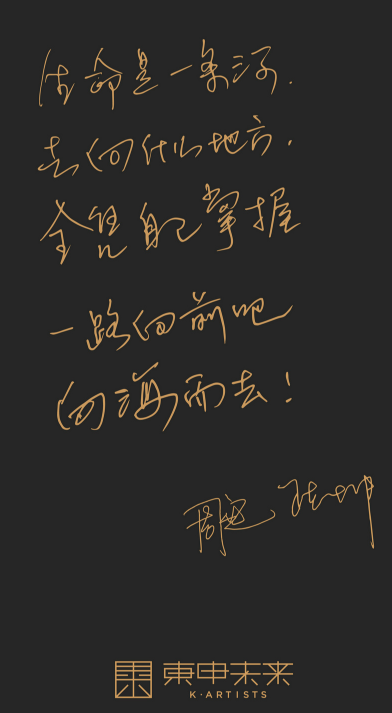 生命是一条河.
去向什么地方.
全凭自己掌握
一路向前吧
向海而去!
周延、張坤
東申未来
K·ARTISTS